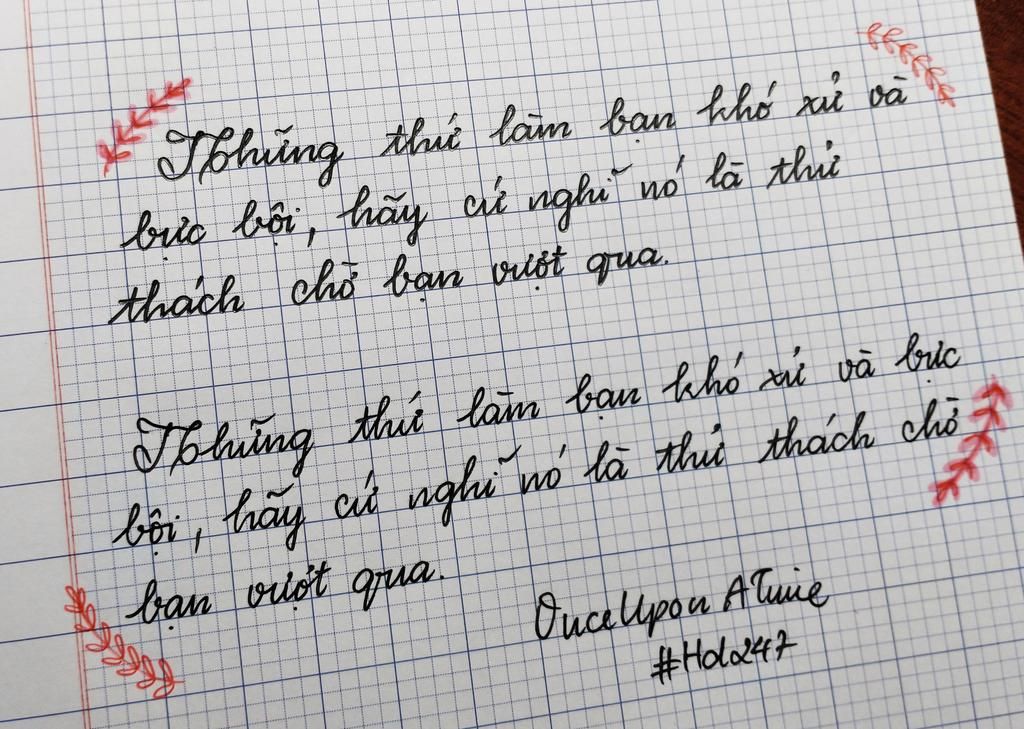 Những thứ làm bạn khó xử và
bực bội, hãy cứ nghĩ nó là thử
thách chờ bạn vượt qua.
Những thứ làm bạn khó xử và bực
bội, hãy cứ nghĩ nó là thử thách chờ
bạn vượt qua.
OnceUpon ATime
#Hola247